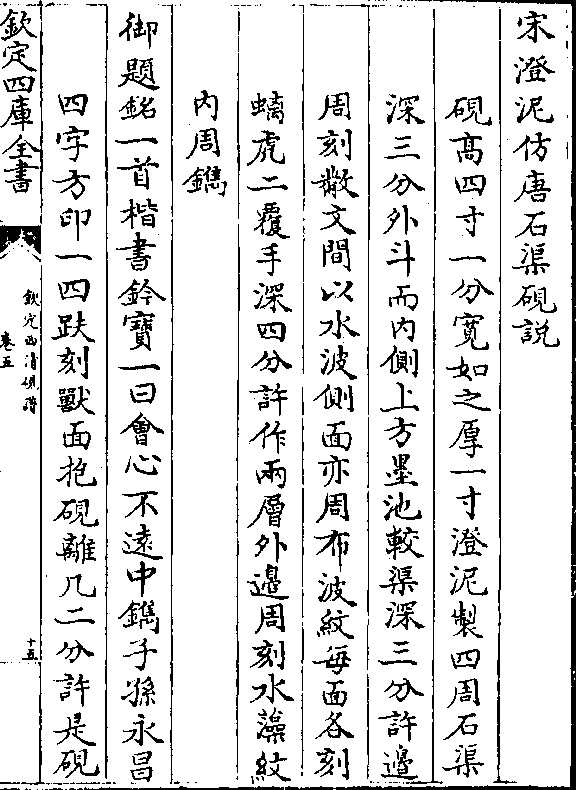 宋澄泥仿唐石渠硯説
硯髙四寸一分寛如之厚一寸澄泥製四周石渠
深三分外斗而内側上方墨池較渠深三分許邉
周刻散文間以水波側面亦周布波紋每面各刻
螭虎二覆手深四分許作兩層外邉周刻水藻紋
内周鐫
御題銘一首楷書鈐寳一曰會心不逺中鐫子孫永昌
四字方印一四趺刻獸面抱硯離几二分許是硯
欽定西清硯譜
卷五
十五
欽定四庫全書